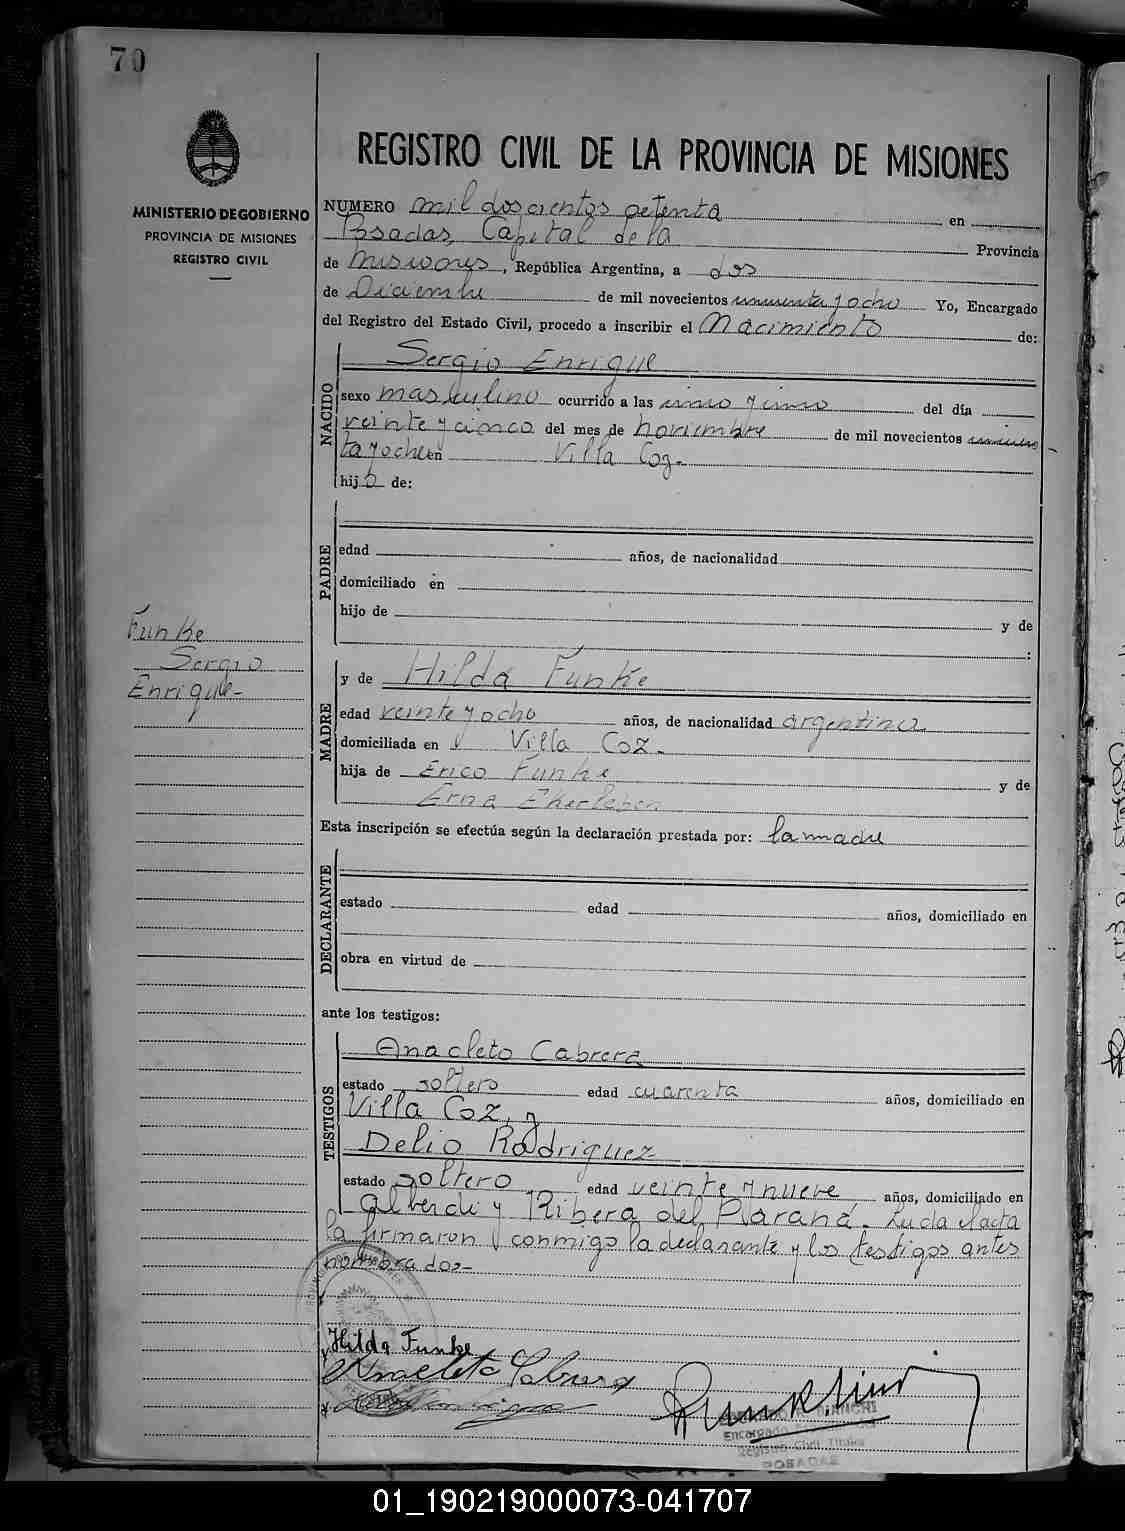 70
REGISTRO CIVIL DE LA PROVINCIA DE MISIONES
MINISTERIO DE GOBIERNO
PROVINCIA DE MISIONES
REGISTRO CIVIL
NUMERO mil doscientos setenta en
Posadas, Capital de la Provincia
de Misiones, República Argentina, a dos
de Diciembre de mil novecientos cincuenta y ocho Yo, Encargado
del Registro del Estado Civil, procedo a inscribir el Nacimiento de:
NACIDO
Sergio Enrique
sexo masculino ocurrido a las del día
veinte y cinco del mes de noviembre de mil novecientos cincuen
ta y ocho en Villa Coz.
hijo de:
PADRE
edad años, de nacionalidad
domiciliado en
hijo de y de
:
Funke
Sergio
Enrique-
MADRE
y de Hilda Funke
edad veinte y ocho años, de nacionalidad argentina
domiciliada en Villa Coz.
hija de Erico Funke y de
Erna
Esta inscripción se efectúa según la declaración prestada por: la madre
DECLARANTE
estado edad años, domiciliado en
obra en virtud de
ante los testigos:
TESTIGOS
Anacleto Cabrera
estado soltero edad cuarenta años, domiciliado en
Villa Coz, y
Delio Rodriguez
estado soltero edad veinte y nueve años, domiciliado en
Alberdi y Ribera del Paraná. Leida el acta
la firmaron conmigo la declarante y los testigos antes
nombrados-
Hilda Funke
Anacleto Cabrera
BIANCHI
Encargado
Registro Civil Titular
POSADAS
01_190219000073-041707